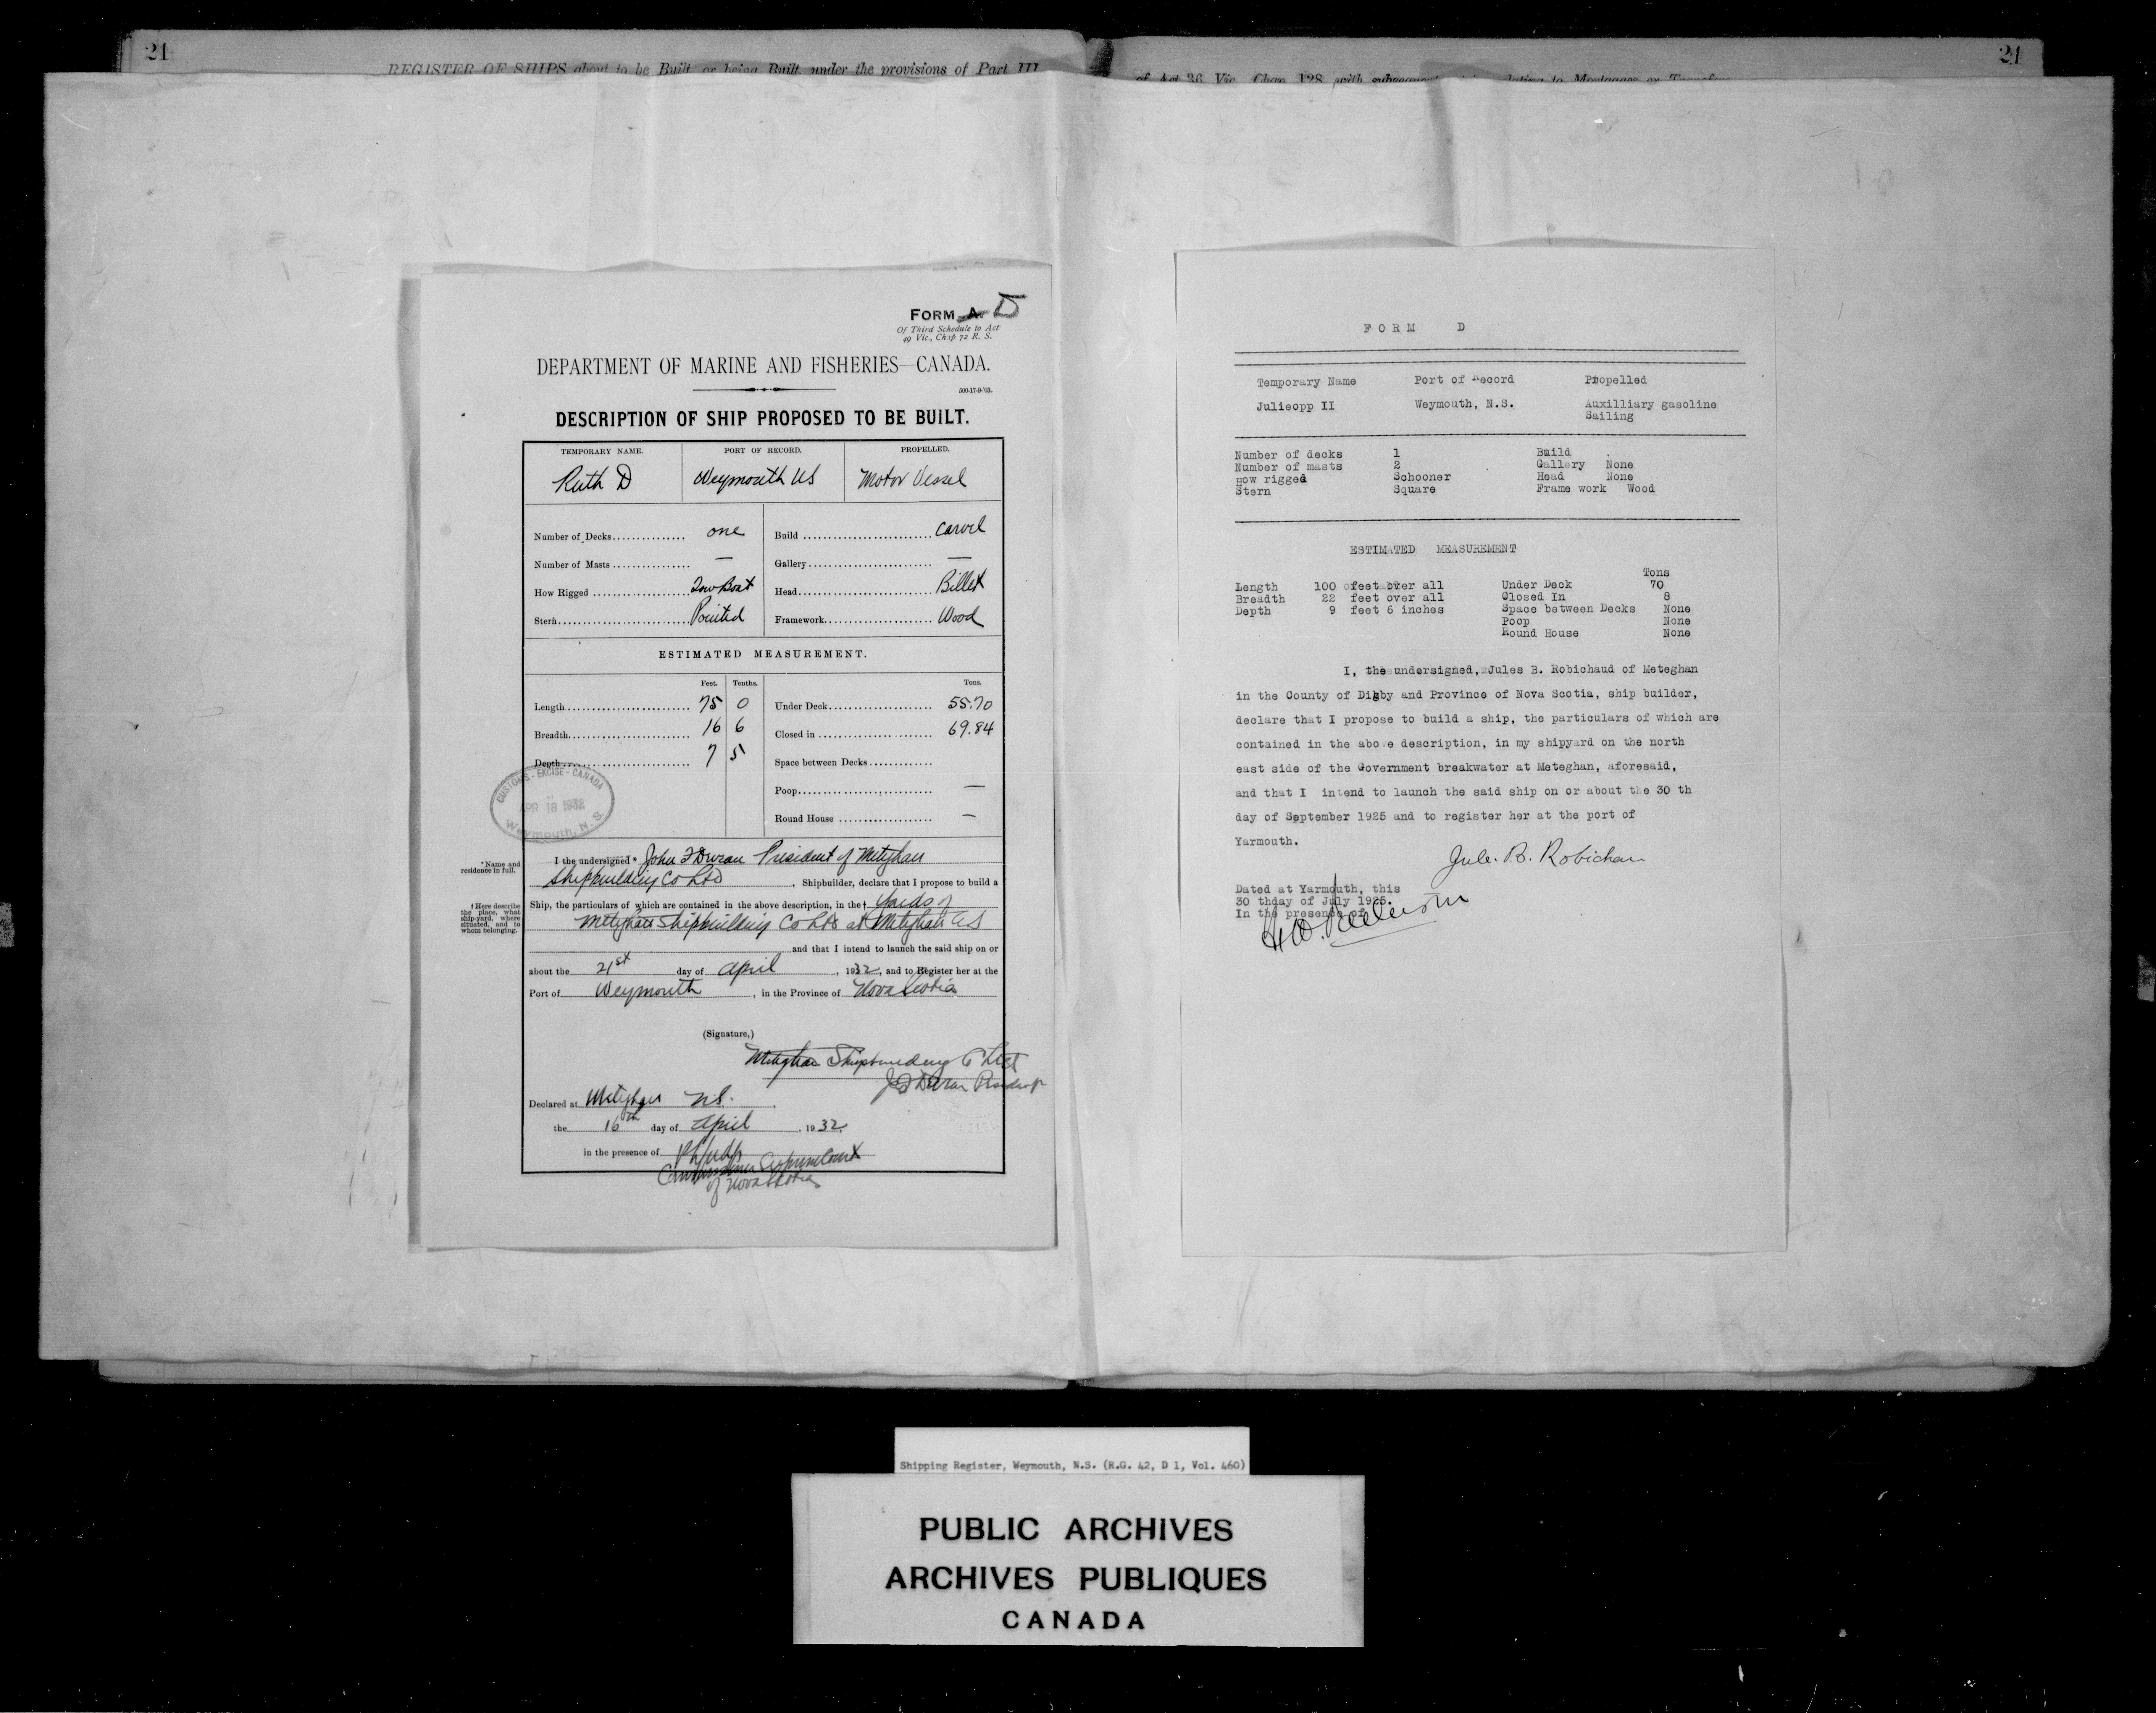 21
REGISTER OF SHIPS about to be Built or being Built under the provisions of Part III
of Act 36 Vic. Chap 128 with
to Mortgages or
21
FORM A. D
Of Third Schedule to Act
49 Vic., Chap 72 R. S.
DEPARTMENT OF MARINE AND FISHERIES—CANADA.
500-17-9-'03.
DESCRIPTION OF SHIP PROPOSED TO BE BUILT.
TEMPORARY NAME. PORT OF RECORD. PROPELLED.
Ruth D Weymouth NS Motor Vessel
Number of Decks one Build Carvel
Number of Masts — Gallery —
How Rigged Tow Boat Head Billet
Stern Pointed Framework Wood
ESTIMATED MEASUREMENT.
Feet. Tenths. Tons.
Length 75 0 Under Deck 55.70
Breadth 16 6 Closed in 69.84
Depth 7 5 Space between Decks
Poop —
Round House —
CUSTOMS - EXCISE - CANADA
APR 18 1932
Weymouth, N. S.
* Name and
residence in full.
I the undersigned * John F Duran President of Meteghan
Shipbuilding Co Ltd, Shipbuilder, declare that I propose to build a
† Here describe
the place, what
ship-yard, where
situated, and to
whom belonging.
Ship, the particulars of which are contained in the above description, in the † Yards of
Meteghan Shipbuilding Co Ltd at Meteghan NS
and that I intend to launch the said ship on or
about the 21st day of April, 1932, and to Register her at the
Port of Weymouth, in the Province of Nova Scotia
(Signature,)
Meteghan Shipbuilding Co Ltd
J F Duran President
Declared at Meteghan N.S.
the 16th day of April, 1932
in the presence of
Commissioner Supreme Court
of Nova Scotia
FORM D
Temporary Name Port of Record Propelled
Julieopp II Weymouth, N.S. Auxilliary gasoline
Sailing
Number of decks 1 Build .
Number of masts 2 Gallery None
How rigged Schooner Head None
Stern Square Frame work Wood
ESTIMATED MEASUREMENT
Tons
Length 100 feet over all Under Deck 70
Breadth 22 feet over all Closed In 8
Depth 9 feet 6 inches Space between Decks None
Poop None
Round House None
I, the undersigned, Jules B. Robichaud of Meteghan
in the County of Digby and Province of Nova Scotia, ship builder,
declare that I propose to build a ship, the particulars of which are
contained in the above description, in my shipyard on the north
east side of the Government breakwater at Meteghan, aforesaid,
and that I intend to launch the said ship on or about the 30 th
day of September 1925 and to register her at the port of
Yarmouth.
Jule. B. Robichau
Dated at Yarmouth, this
30 thday of July 1925.
In the presence of
Shipping Register, Weymouth, N.S. (R.G. 42, D 1, Vol. 460)
PUBLIC ARCHIVES
ARCHIVES PUBLIQUES
CANADA